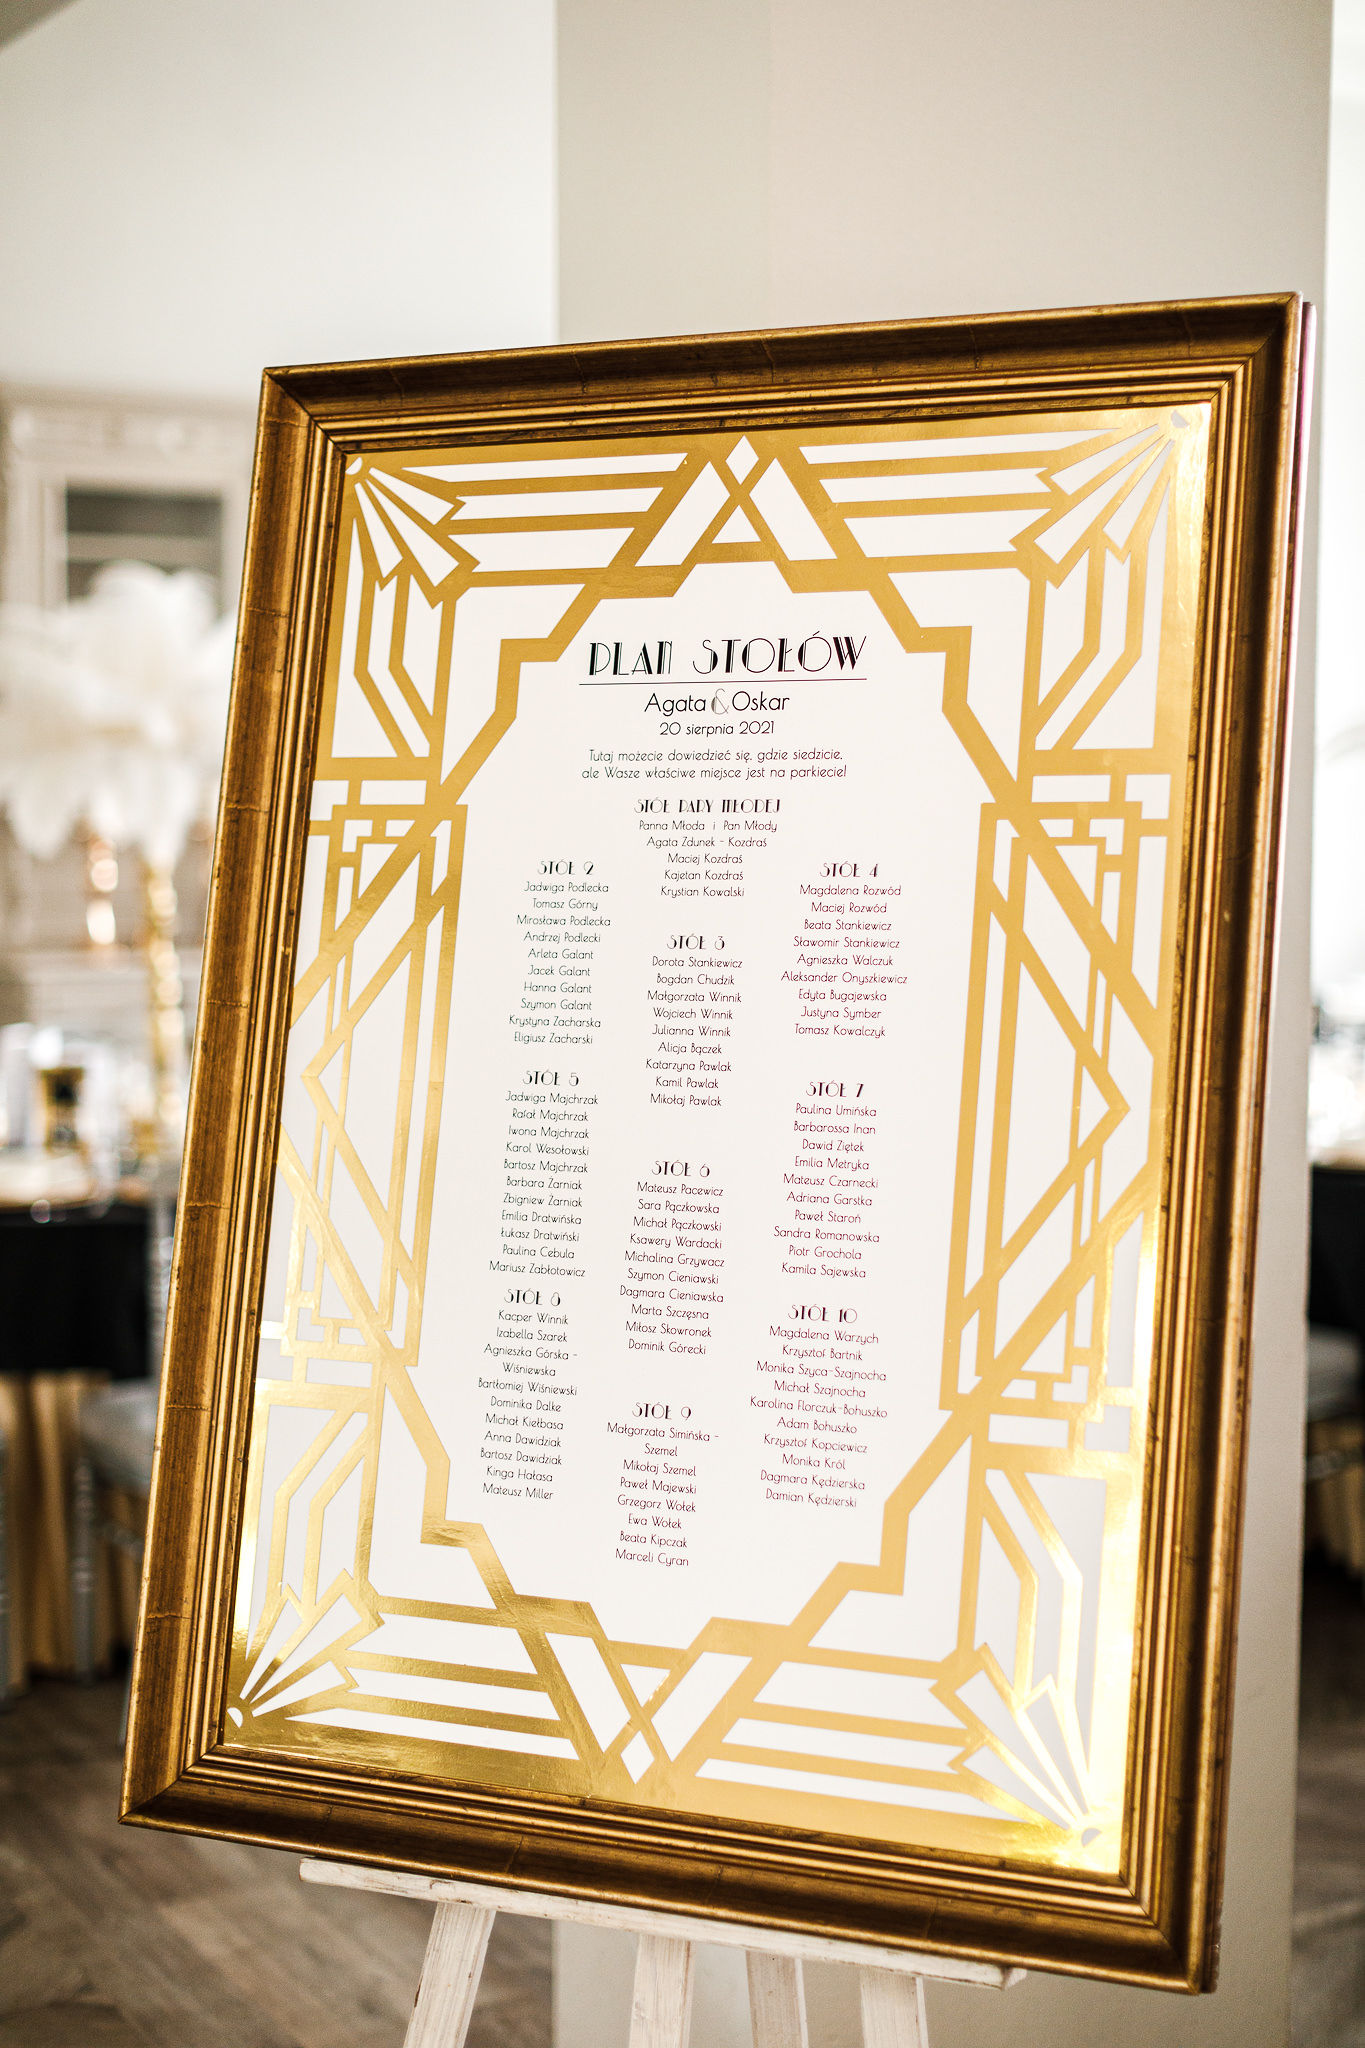 PLAN STOŁÓW
Agata & Oskar
20 sierpnia 2021
Tutaj możecie dowiedzieć się, gdzie siedzicie,
ale Wasze właściwe miejsce jest na parkiecie!
STÓŁ PARY MŁODEJ
Panna Młoda i Pan Młody
Agata Zdunek - Kozdraś
Maciej Kozdraś
Kajetan Kozdraś
Krystian Kowalski
STÓŁ 2
Jadwiga Podlecka
Tomasz Górny
Mirosława Podlecka
Andrzej Podlecki
Arleta Galant
Jacek Galant
Hanna Galant
Szymon Galant
Krystyna Zacharska
Eligiusz Zacharski
STÓŁ 3
Dorota Stankiewicz
Bogdan Chudzik
Małgorzata Winnik
Wojciech Winnik
Julianna Winnik
Alicja Bączek
Katarzyna Pawlak
Kamil Pawlak
Mikołaj Pawlak
STÓŁ 4
Magdalena Rozwód
Maciej Rozwód
Beata Stankiewicz
Sławomir Stankiewicz
Agnieszka Walczuk
Aleksander Onyszkiewicz
Edyta Bugajewska
Justyna Symber
Tomasz Kowalczyk
STÓŁ 5
Jadwiga Majchrzak
Rafał Majchrzak
Iwona Majchrzak
Karol Wesołowski
Bartosz Majchrzak
Barbara Żarniak
Zbigniew Żarniak
Emilia Dratwińska
Łukasz Dratwiński
Paulina Cebula
Mariusz Zabłotowicz
STÓŁ 6
Mateusz Pacewicz
Sara Pączkowska
Michał Pączkowski
Ksawery Wardacki
Michalina Grzywacz
Szymon Cieniawski
Dagmara Cieniawska
Marta Szczęsna
Miłosz Skowronek
Dominik Górecki
STÓŁ 7
Paulina Umińska
Barbarossa Inan
Dawid Ziętek
Emilia Metryka
Mateusz Czarnecki
Adriana Garstka
Paweł Staroń
Sandra Romanowska
Piotr Grochola
Kamila Sajewska
STÓŁ 8
Kacper Winnik
Izabella Szarek
Agnieszka Górska -
Wiśniewska
Bartłomiej Wiśniewski
Dominika Dalke
Michał Kiełbasa
Anna Dawidziak
Bartosz Dawidziak
Kinga Hałasa
Mateusz Miller
STÓŁ 9
Małgorzata Simińska -
Szemel
Mikołaj Szemel
Paweł Majewski
Grzegorz Wołek
Ewa Wołek
Beata Kipczak
Marceli Cyran
STÓŁ 10
Magdalena Warzych
Krzysztof Bartnik
Monika Szyca-Szajnocha
Michał Szajnocha
Karolina Florczuk-Bohuszko
Adam Bohuszko
Krzysztof Kopciewicz
Monika Król
Dagmara Kędzierska
Damian Kędzierski